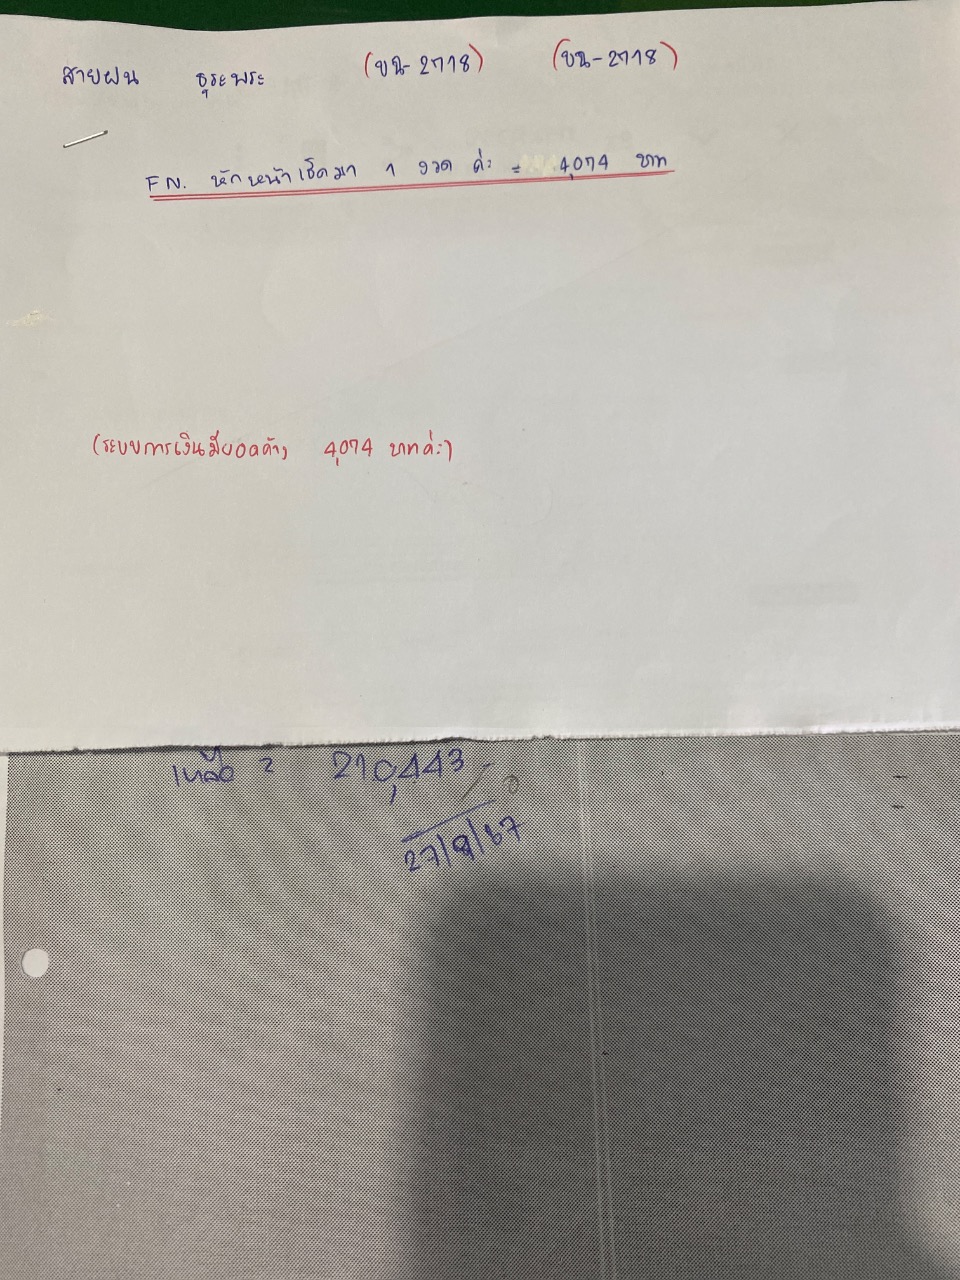 สายฝน ธุระพระ (ขฉ-2718) (ขฉ-2718)
FN. หักหน้าเช็คมา 1 งวด ค่ะ = 4,074 บาท
(ระบบการเงินมียอดค้าง 4,074 บาทค่ะ)
เหลือ 2 210,443 -
27/9/67